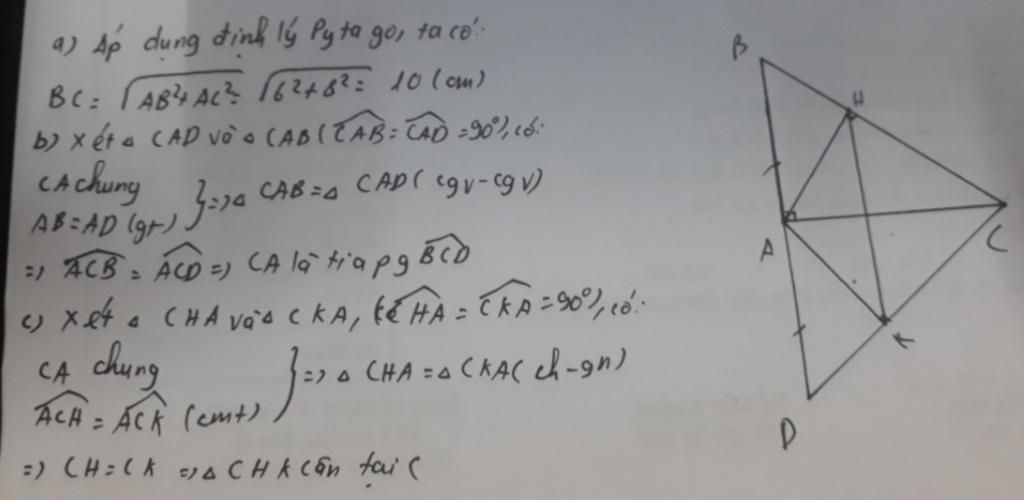 a) Áp dụng định lý Pytago, ta có:
BC = √AB²+AC² = √6²+8² = 10 (cm)
b) Xét △ CAD và △ CAB (CAB = CAD = 90°), có:
CA chung
AB = AD (gt) } => △ CAB = △ CAD (cgv-cgv)
=> ACB = ACD => CA là tia pg BCD
c) Xét △ CHA và △ CKA, (CHA = CKA = 90°), có:
CA chung
ACH = ACK (cmt) } => △ CHA = △ CKA (ch-gn)
=> CH = CK => △ CHK cân tại C
B
H
A
C
K
D